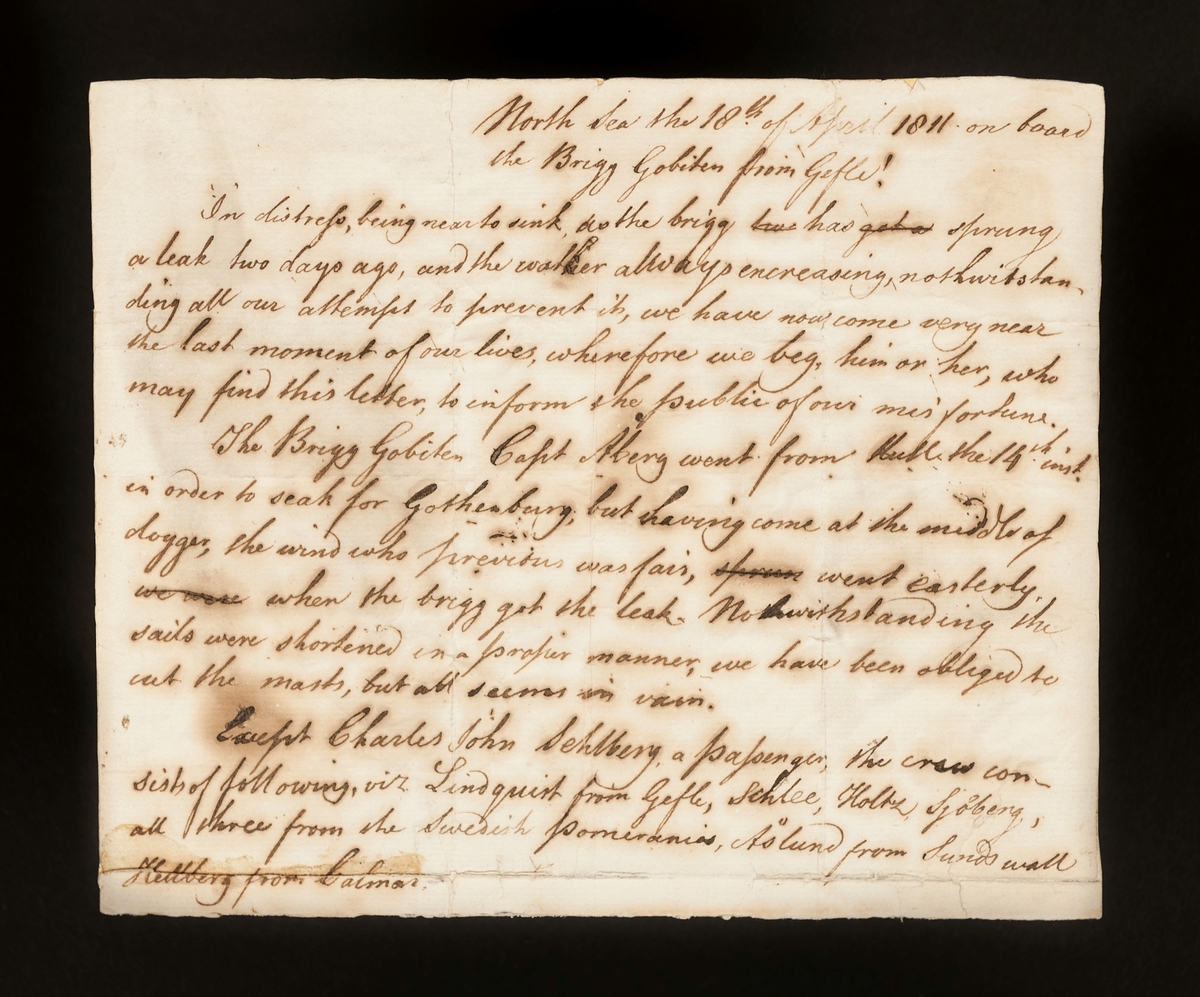 North Sea the 18th of April 1811 on board
the Brigg Gobiten from Gefle!
In distress, being near to sink, as the brigg has got a sprung
a leak two days ago, and the watter allways encreasing, nothwitstan-
ding all our attempt to prevent it, we have now come very near
the last moment of our lives, wherefore we beg, him or her, who
may find this letter, to inform the public of our misfortune.
The Brigg Gobiten Capt Åberg went from Hull the 14th inst.
in order to seak for Gothenburg, but having come at the middle of
dogger, the wind who previous was fair, sprun went easterly.
we were when the brigg got the leak. Nothwithstanding the
sails were shortened in a proper manner, we have been obliged to
cut the masts, but all seems in vain.
Except Charles John Sehlberg, a passenger, the crew con-
sists of following, viz Lindquist from Gefle, Schlee, Holtz, Sjöberg,
all three from the Swedish Pomerania, Åslund from Sundswall
Hellberg from Calmar.